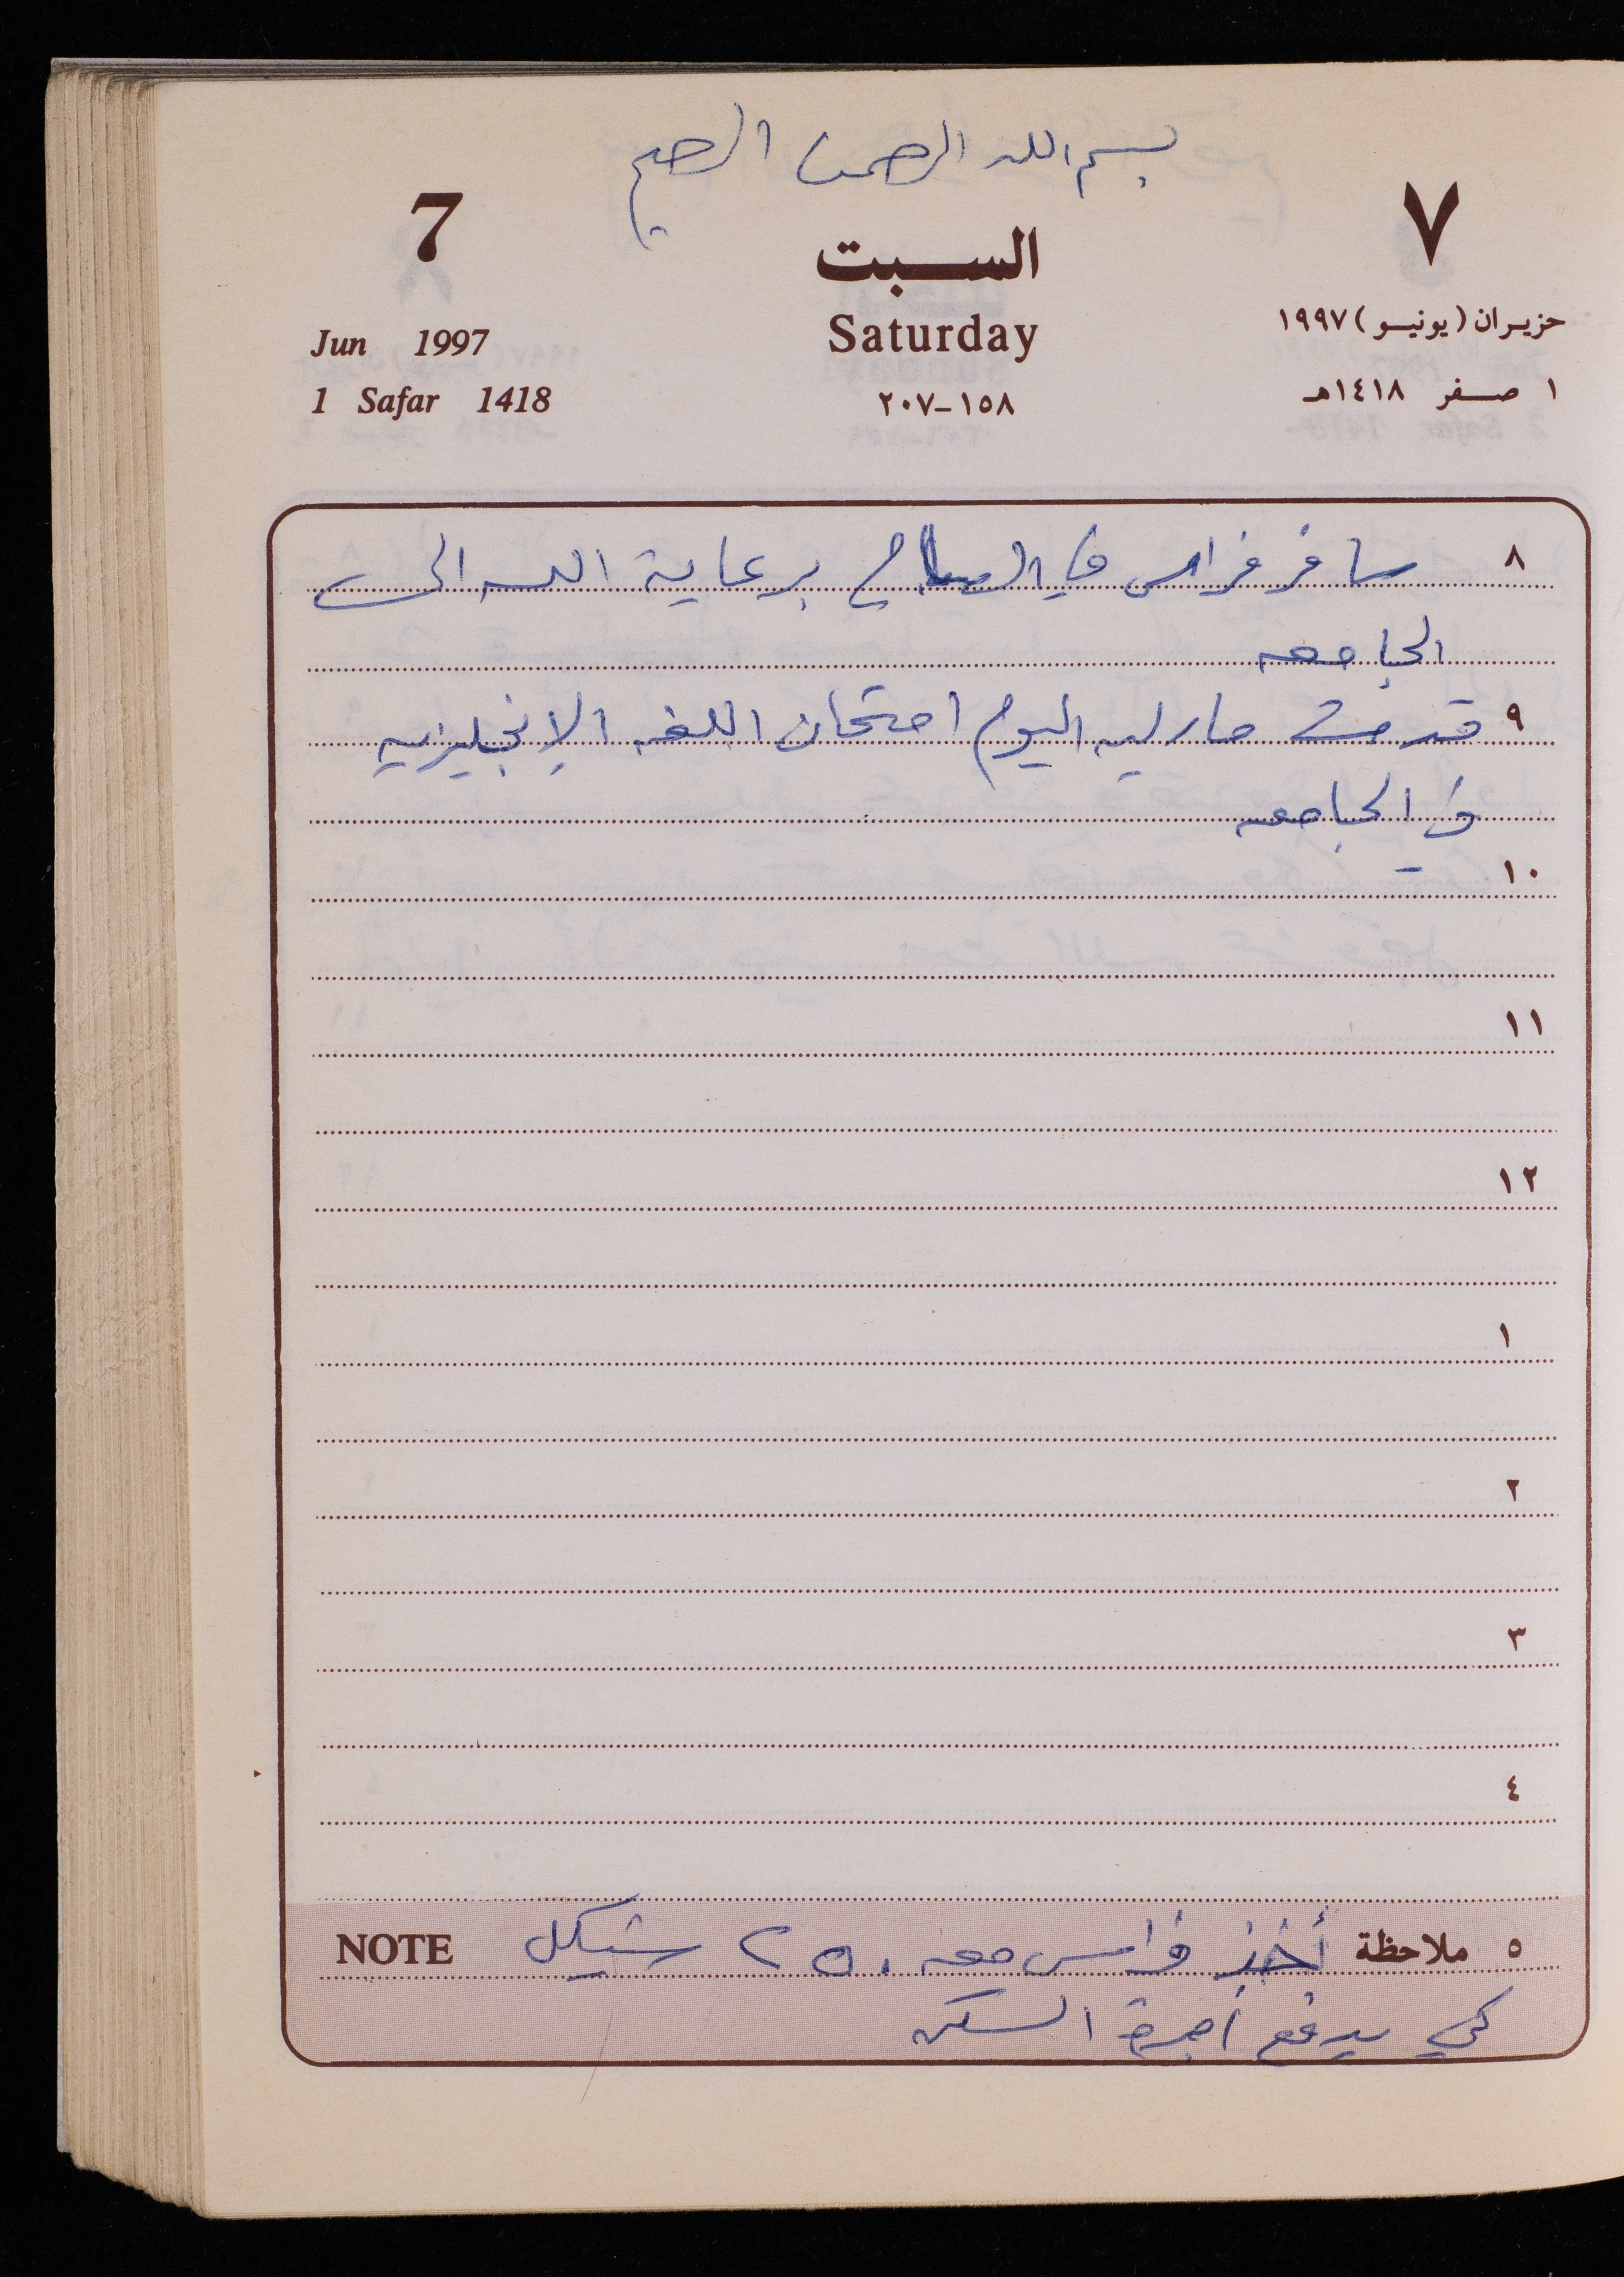 بسم الله الرحمن الرحيم
7
السبت
٧
Jun 1997
Saturday
حزيران (يونيو) ١٩٩٧
1 Safar 1418
١٥٨-٢٠٧
١ صفر ١٤١٨هـ
٨ سافر فراس في الصباح برعاية الله الى
الجامعه
٩ قدمت مارليه اليوم امتحان اللغه الإنجليزيه
في الجامعه
١٠
١١
١٢
١
٢
٣
٤
٥ ملاحظة أخذ فراس معه ٢٥٠ شيكل NOTE
كي يدفع أجرة السكن